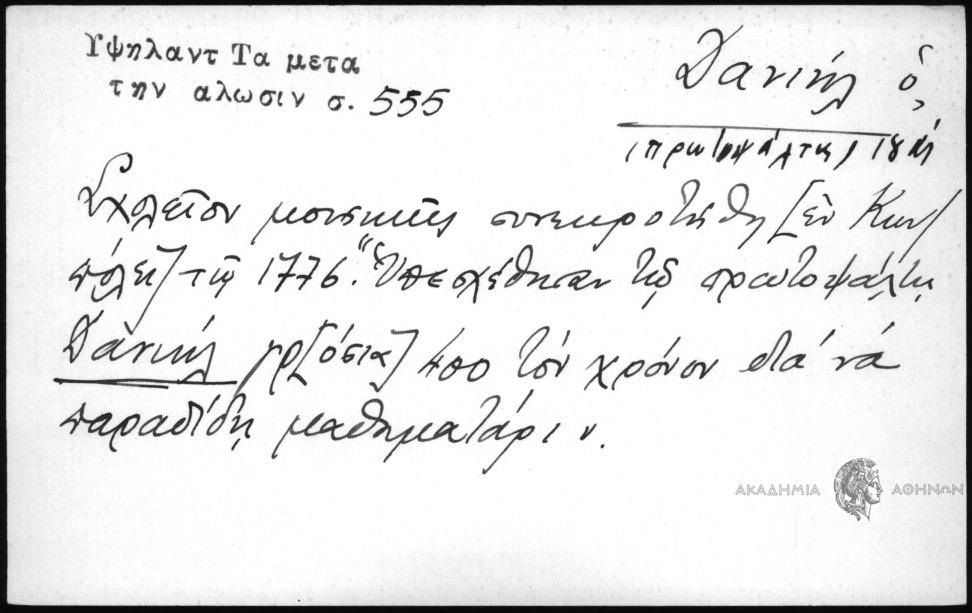 Υψηλαντ Τα μετα
την αλωσιν σ. 555
Δανιήλ ὁ
(πρωτοψάλτης)
Σχολεῖον μουσικῆς συνεκροτήθη [ἐν Κων/
πόλει] τῷ 1776. "Ὑπεσχέθησαν τῷ πρωτοψάλτῃ
Δανιήλ γρ[όσια] 400 τὸν χρόνον διά νά
παραδίδῃ μαθηματάριν.
ΑΚΑΔΗΜΙΑ ΑΘΗΝΩΝ